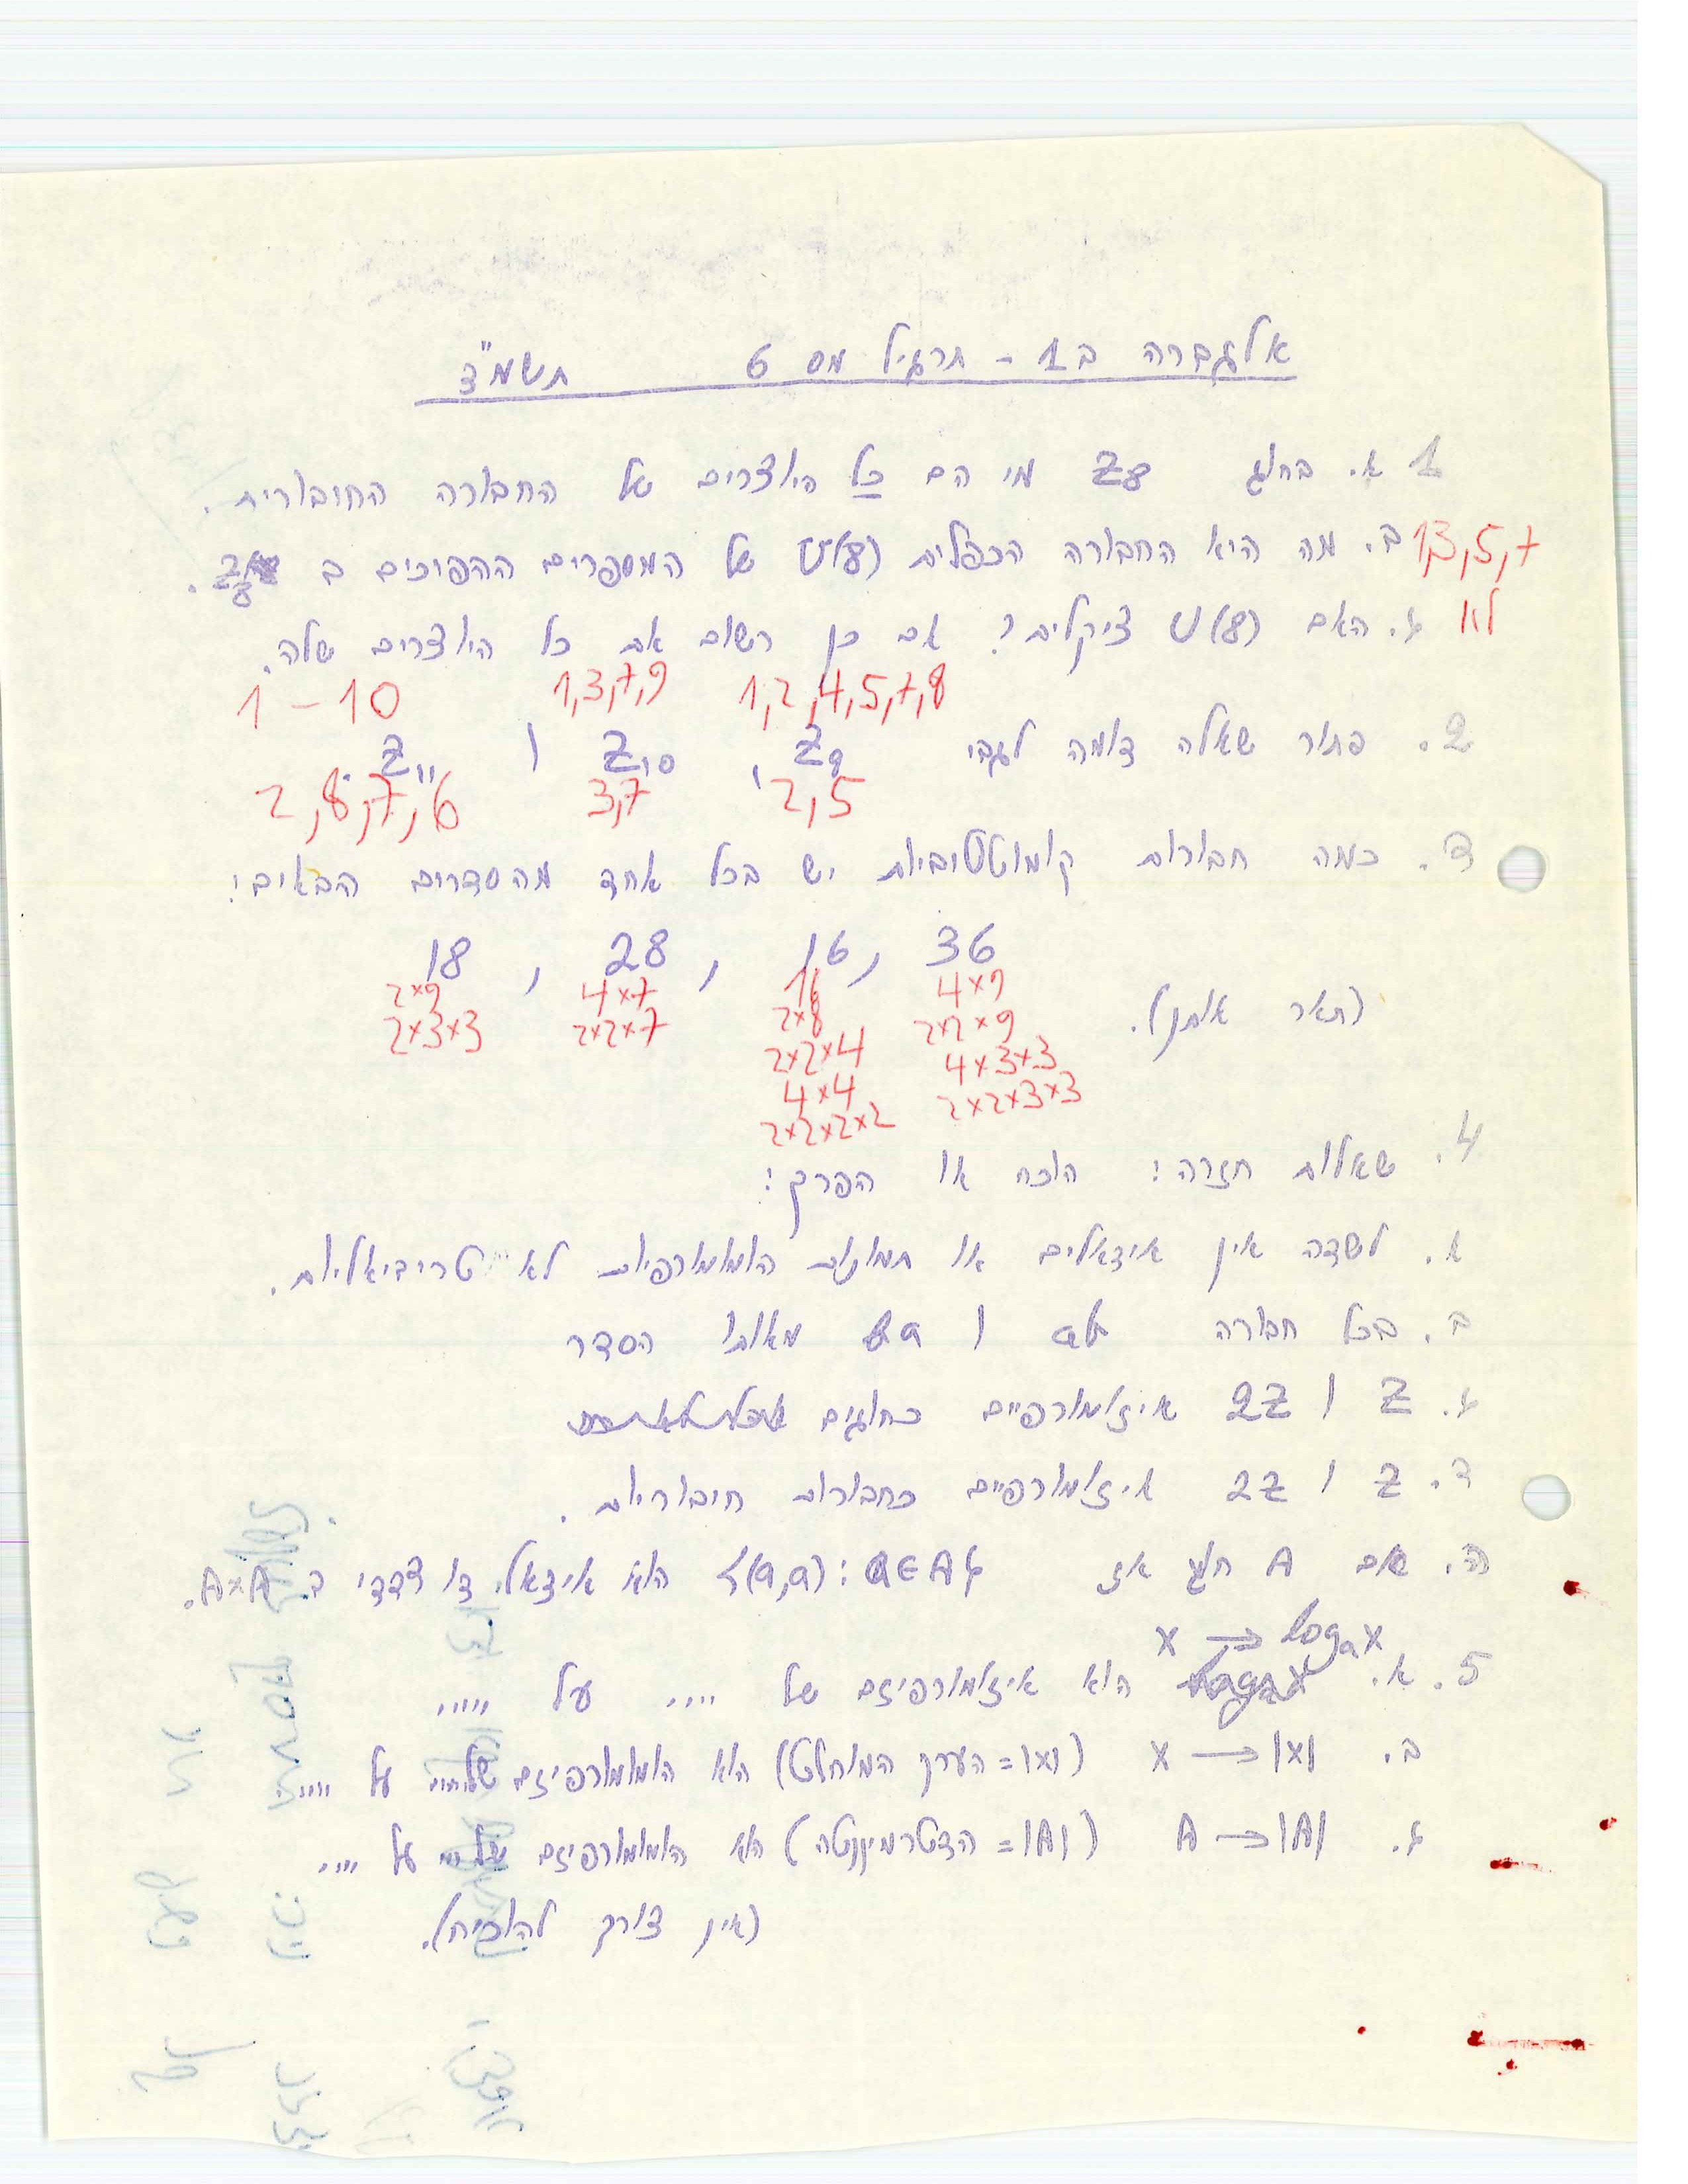 אלגברה ב1 - תרגיל מס 6 תשמ"ד
1 א. בחוג Z8 מי הם כל היוצרים של החבורה החיבורית.
1,3,5,7
ב. מה היא החבורה הכפלית U(8) של המספרים ההפיכים ב Z8.
לא
ג. האם U(8) ציקלית? אם כן רשום את כל היוצרים שלה.
1,2,4,5,7,8 1,3,7,9 1-10
2. פתור שאלה דומה לגבי Z9, Z10 ו Z11.
2,5 3,7 2,8,7,6
3. כמה חבורות קומוטטיביות יש בכל אחד מהסדרים הבאים:
36, 16, 28, 18
4×9 16 4×7 2×9
2×2×9 2×8 2×2×7 2×3×3
(תאר אותן).
4×3×3 2×2×4
2×2×3×3 4×4
2×2×2×2
4. שאלות חזרה: הוכח או הפרך:
א. לשדה אין אידאלים או תמונות הומומורפיות לא טריביאליות.
ב. בכל חבורה ab ו ba מאותו הסדר
ג. Z ו 2Z איזומורפיים כחוגים
ד. Z ו 2Z איזומורפיים כחבורות חיבוריות.
ה. אם A חוג אז {(a,a): a∈A} הוא אידאל דו צדדי ב A×A.
x → logax
5. א. הוא איזומורפיזם של .... על .....
ב. x → |x| (|x| = הערך המוחלט) הוא הומומורפיזם של .... על .....
ג. A → |A| (|A| = הדטרמיננטה) הוא הומומורפיזם של ... על ....
(אין צורך להוכיח).